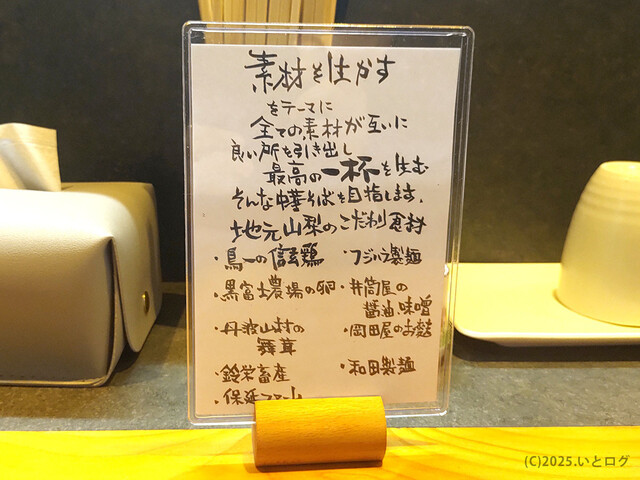 素材を生かす
をテーマに
全ての素材が互いに
良い所を引き出し
最高の一杯を生む
そんな中華そばを目指します。
地元山梨のこだわり食材
・鳥一の信玄鶏
・黒富士農場の卵
・丹波山村の
舞茸
・鈴栄畜産
・保延ファーム
・フジハラ製麺
・井筒屋の
醤油、味噌
・岡田屋のお麩
・和田製麺
(C)2025.いとログ